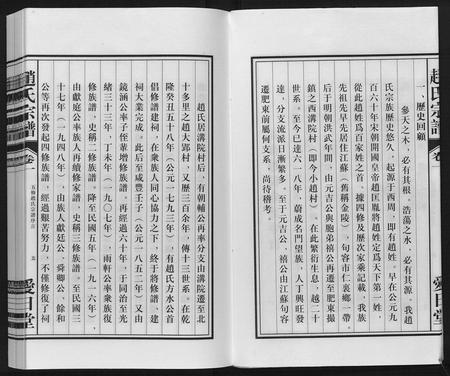 趙氏宗譜
卷一
愛日堂
一、歷史回顧
參天之木，必有其根，浩蕩之水，必有其源，我趙
氏宗族歷史悠久，起源于西周，即有趙姓，早在公元九
百六十年宋朝開國皇帝趙匡胤將趙姓定爲天下第一姓，
從此趙姓爲百家姓之首，據四修及歷次家乘記載，我族
先祖早先居住江蘇（舊稱金陵），句容市仁裏鄉一帶。
后于明朝洪武年間，由元吉公與胞弟禧公再遷至肥東撮
鎮之西溝院村（即今小趙村）。在此繁衍生息，越二十
世系，至今已達六一八年，蔚成名門望族，人丁興旺發
達，分支流派日漸繁多。至于元吉公、禧公由江蘇句容
遷肥東前屬何支系，尚待稽考。
趙氏居溝院村后，有朝輔公再率分支由溝院遷至北
十多里之趙大郢村，又歷三百余年，傳十三世系。在乾
隆癸丑五十八年（公元一七九三年），有趙氏方水公首
倡修譜建祠，在衆族人同心協力之下，終于將修譜、建
祠大業完成。此后至咸豐壬子（公元一八五二年）又由
鏡涵公率子侄輩增修族譜。再經過六十年，于同治至光
緒三十三年，丁未年（一九〇七年），雨軒公率衆族復
修族譜，史稱二修族譜。降至民國五年（一九一六年），
由獻庭公率族人再續修家譜，史稱三修族譜。至民國三
十七年（一九四八年），由族人獻廷公、舜卿公、餘和
公等再次發起四修族譜，經過艱苦努力，不僅修復了祠
趙氏宗譜
卷一
五修趙氏宗譜序言
五
愛日堂